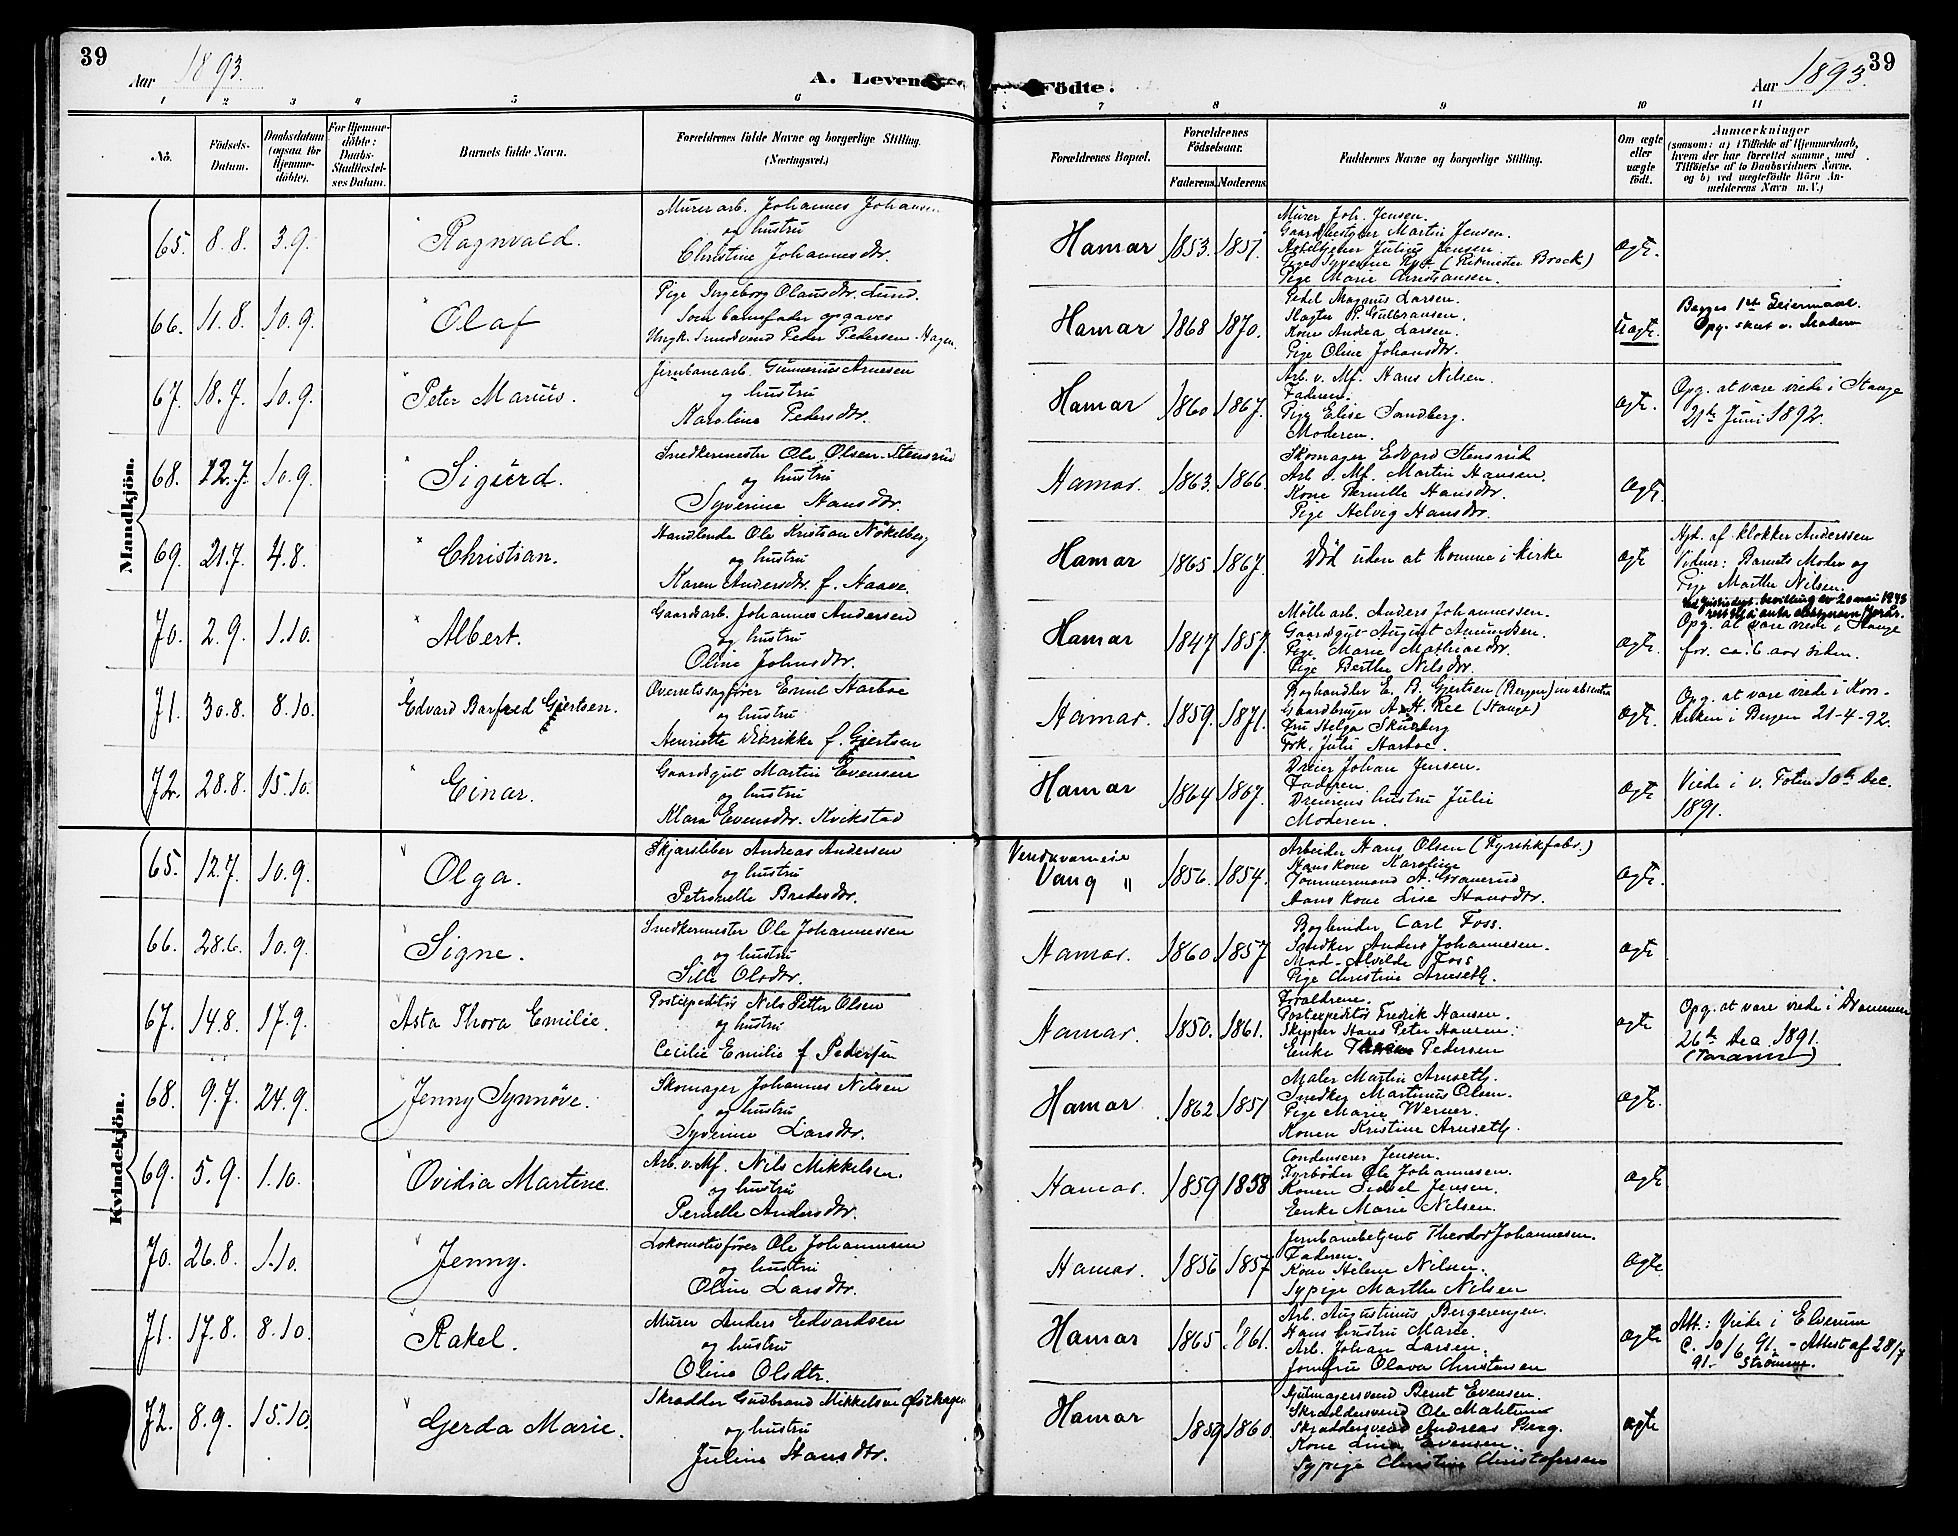 39
Aar 1893.
A. Levende
1 2 3 4 5 6
No.
Fødsels-Datum.
Daabsdatum (ogsaa for Hjemmedøbte).
For Hjemmedøbte: Daabs-Stadfæstelses Datum.
Barnets fulde Navn.
Forældrenes fulde Navne og borgerlige Stilling.
(Næringsvei.)
Mandkjøn.
65. 8.8. 3.9. Ragnvald. Murerarb. Johannes Johansen
og hustru
Christine Johannesdtr.
66. 11.8. 10.9. Olaf Pige Ingeborg Olausdtr. Lund.
Som barnefader opgaves
Ungk. Smedsvend Peder Pedersen Hagen.
67. 18.7. 10.9. Peter Marius. Jernbanearb. Gunnerius Arnesen
og hustru
Karoline Pedersdtr.
68. 12.7. 10.9. Sigurd. Snedkermester Ole Olsen Stensrud
og hustru
Syverine Hansdtr.
69. 21.7. 4.8. Christian. Handlende Ole Kristian Nökleberg
og hustru
Karen Andersdtr. f. Haave.
70. 2.9. 1.10. Albert. Gaardsarb. Johannes Andersen
og hustru
Oline Johnsdtr.
71. 30.8. 8.10. Edvard Barfred Gjertsen. Overretssagfører Emil Aarboe
og hustru
Henriette f. Gjertsen
72. 28.8. 15.10. Einar. Gaardsgut Martin Evensen
og hustru
Klara Evensdtr. Kvikstad
Kvindekjøn.
65. 12.7. 10.9. Olga. Skjærsliber Andreas Andersen
og hustru
Petronelle Bredesdtr.
66. 28.6. 10.9. Signe. Snedkermester Ole Johannessen
og hustru
Sille Olsdtr.
67. 14.8. 17.9. Asta Thora Emilie. Postexpeditør Nils Petter Olsen
og hustru
Cecilie Emilie f. Pedersen
68. 9.7. 24.9. Jenny Synnöve. Skomager Johannes Nilsen
og hustru
Syverine Larsdtr.
69. 5.9. 1.10. Ovidia Martine. Arb. v. Mf. Nils Mikkelsen.
og hustru
Pernelle Andersdtr.
70. 26.8. 1.10. Jenny. Lokomotivfører Ole Johannesen
og hustru
Oline Larsdtr.
71. 17.8. 8.10. Rakel. Murer Anders Edvardsen
og hustru
Oline Olsdtr.
72. 8.9. 15.10. Gerda Marie. Skrædder Gudbrand Mikkelsen
og hustru
Juline Hansdtr.
39
Aar 1893.
Fødte.
7 8 9 10 11
Forældrenes Bopæl.
Forældrenes Fødselsaar.
Faderens. Moderens.
Faddernes Navne og borgerlige Stilling.
Om ægte eller uægte født.
Anmærkninger
(saasom: a) i Tilfælde af Hjemmedaab, hvem der har forrettet samme, med Tilføielse af to Daabsvidners Navne, og b) ved uægtefødte Børn Anmelderens Navn m. V.)
Hamar 1853. 1851. Murer Joh. Jensen.
Gaardbestyrer Martin Jensen.
Hoteltjener Julius Jensen.
Pige Syverine
Pige Marie Christiansen.
ægte.
Hamar 1868 1870. Pedel Magnus Larsen.
Slagter P. Gulbransen.
Kone Andrea Larsen.
Pige Oline Johansdtr.
Uægte. Begges 1ste Leiermaal.
Opg. skeet v. Modern
Hamar 1860 1867. Arb. v. Mf. Hans Nilsen.
Faderen.
Pige Elise Sandberg.
Moderen.
ægte. Opg. at være viede i Stange
21de Juni 1892.
Hamar. 1863. 1866. Skomager Edvard Stensrud
Arb. v. Mf. Martin Hansen.
Kone Pernille Hansdtr.
Pige Helvig Hansdtr.
ægte
Hamar 1865 1867. Död uden at komme i kirke
ægte Hjd. af klokker Anderssen
Vidner: Barnets Moder og
Pige Marthe Nilsen.
Hamar 1847 1857. Möllearb. Anders Johannessen.
Gaardsgut August Amundsen.
Pige Marie Mathiasdtr.
Pige Berthe Nilsdtr.
ægte. bevilling av 20 mai 1943
Opg. at være viede i Stange
for ca. 6 aar siden.
Hamar. 1859. 1871. Boghandler E. B. Gjertsen (Bergen) in absentia
Gaardbruger A. H. Kee (Stange)
Fru Helga
Frk. Julie Aarboe.
ægte. Opg. at være viede i Korskirken i Bergen 21-4-92.
Hamar 1864 1867. Dreier Johan Jensen.
Faderen.
Dreierens hustru Julie
Moderen.
ægte Viede i v. Toten 10de Dec.
1891.
Vang " 1856. 1854. Arbeider Hans Olsen (Fyrstikfabr.)
Hans kone Karoline
Tömmermand A. Granerud
Hans kone Lise Hansdtr.
ægte.
Hamar. 1860 1857 Bogbinder Carl Foss.
Snedker Anders Johannesen.
Mad. Alvilde Foss
Pige Christine Arneseth.
ægte
Hamar. 1850. 1861. Forældrene.
Postexpeditör Fredrik Hansen.
Skipper Hans Peter Hansen.
Enke Pedersen
ægte Opg. at være viede i Drammen
26de Dec. 1891.
Hamar. 1862 1851 Maler Martin Arneseth.
Snedker Martinus Olsen.
Pige Marie Werner.
Konen Kristine Arneseth.
ægte.
Hamar. 1859 1858 Condenserer Jensen.
Fyrböder Ole Johannesen.
Konen Sidsel Jensen.
Enke Marie Nilsen.
ægte
Hamar. 1856 1857 Jernbanebetjent Theodor Johannesen.
Faderen.
Kone Helene Nilsen.
Sypige Marthe Nilsen
ægte
Hamar 1865 1861. Arb. Augustinus Bergerengen.
Hans hustru Marie.
Arb. Johan Larsen.
Jomfru Olava Christensen
ægte Att.: Viede i Elverum
C. 10/6 91. – Attest af 28/7
91. Strömme.
Hamar 1859 1860. Gjörtmagersvend Bernt Evensen.
Skræddersvend Ole
Skræddersvend Andreas Berg.
Kone Lina Evensen.
Sypige Christine Christofersen
ægte